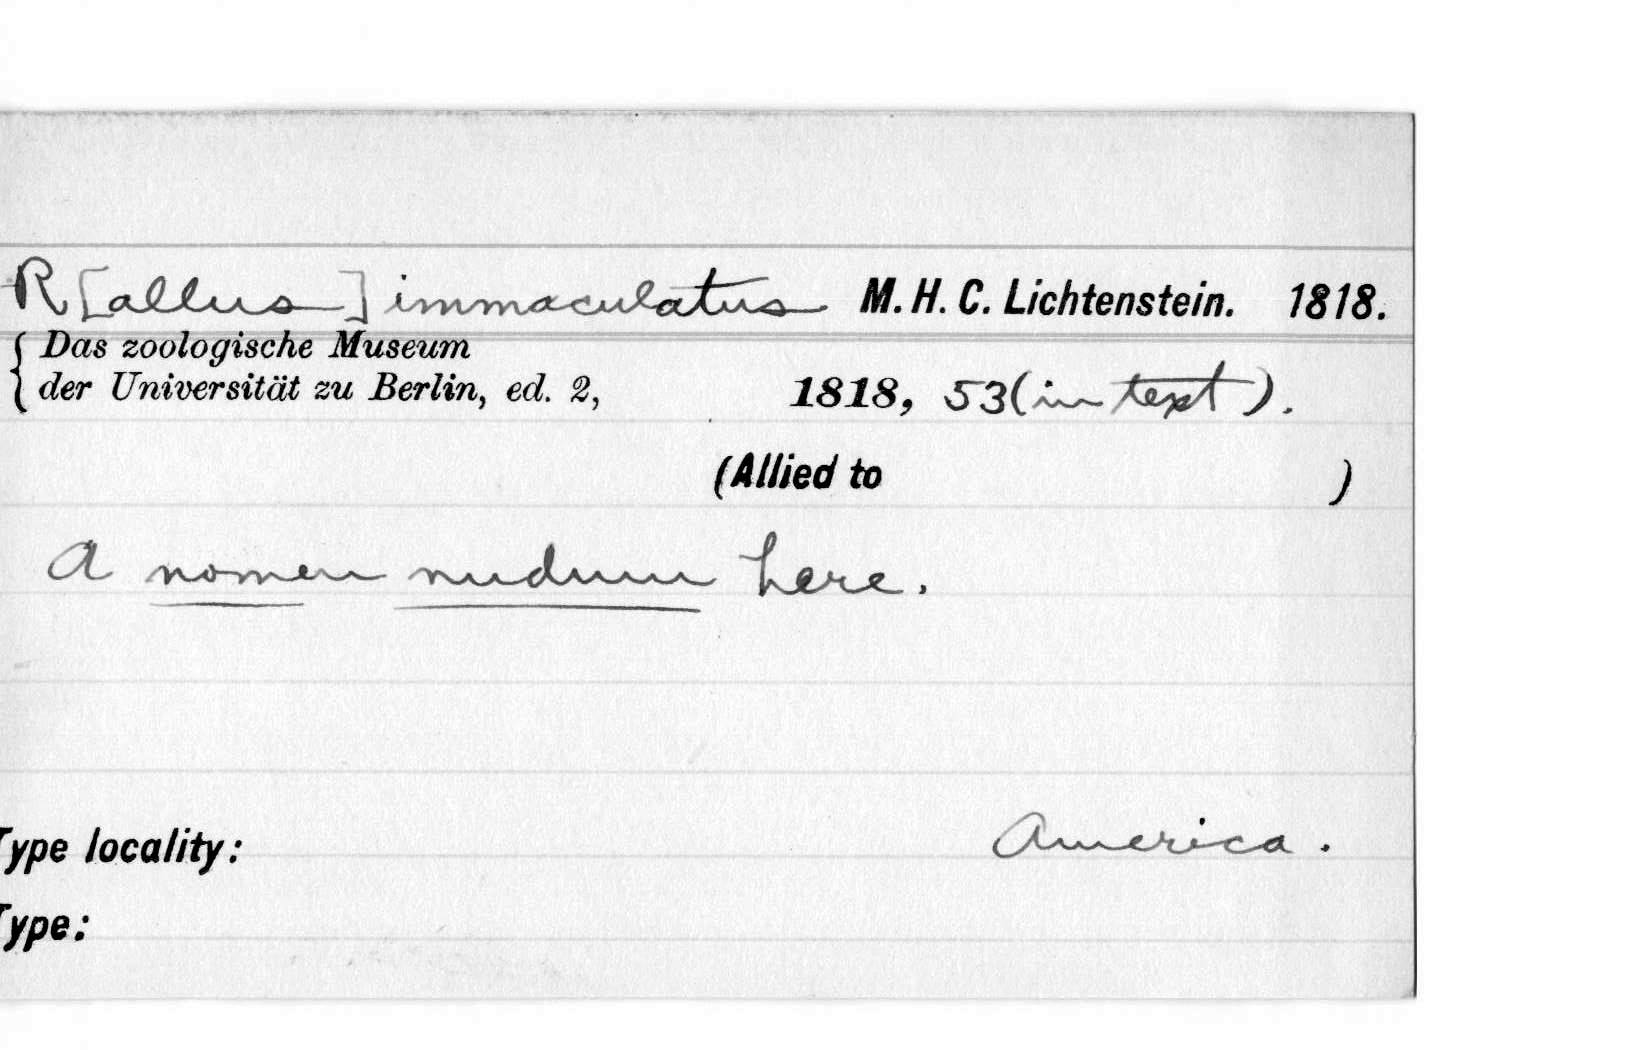 R[allus] immaculatus M. H. C. Lichtenstein. 1818.
Das zoologische Museum
der Universität zu Berlin, ed. 2, 1818, 53 (in text).
(Allied to )
A nomen nudum here.
Type locality: America.
Type: